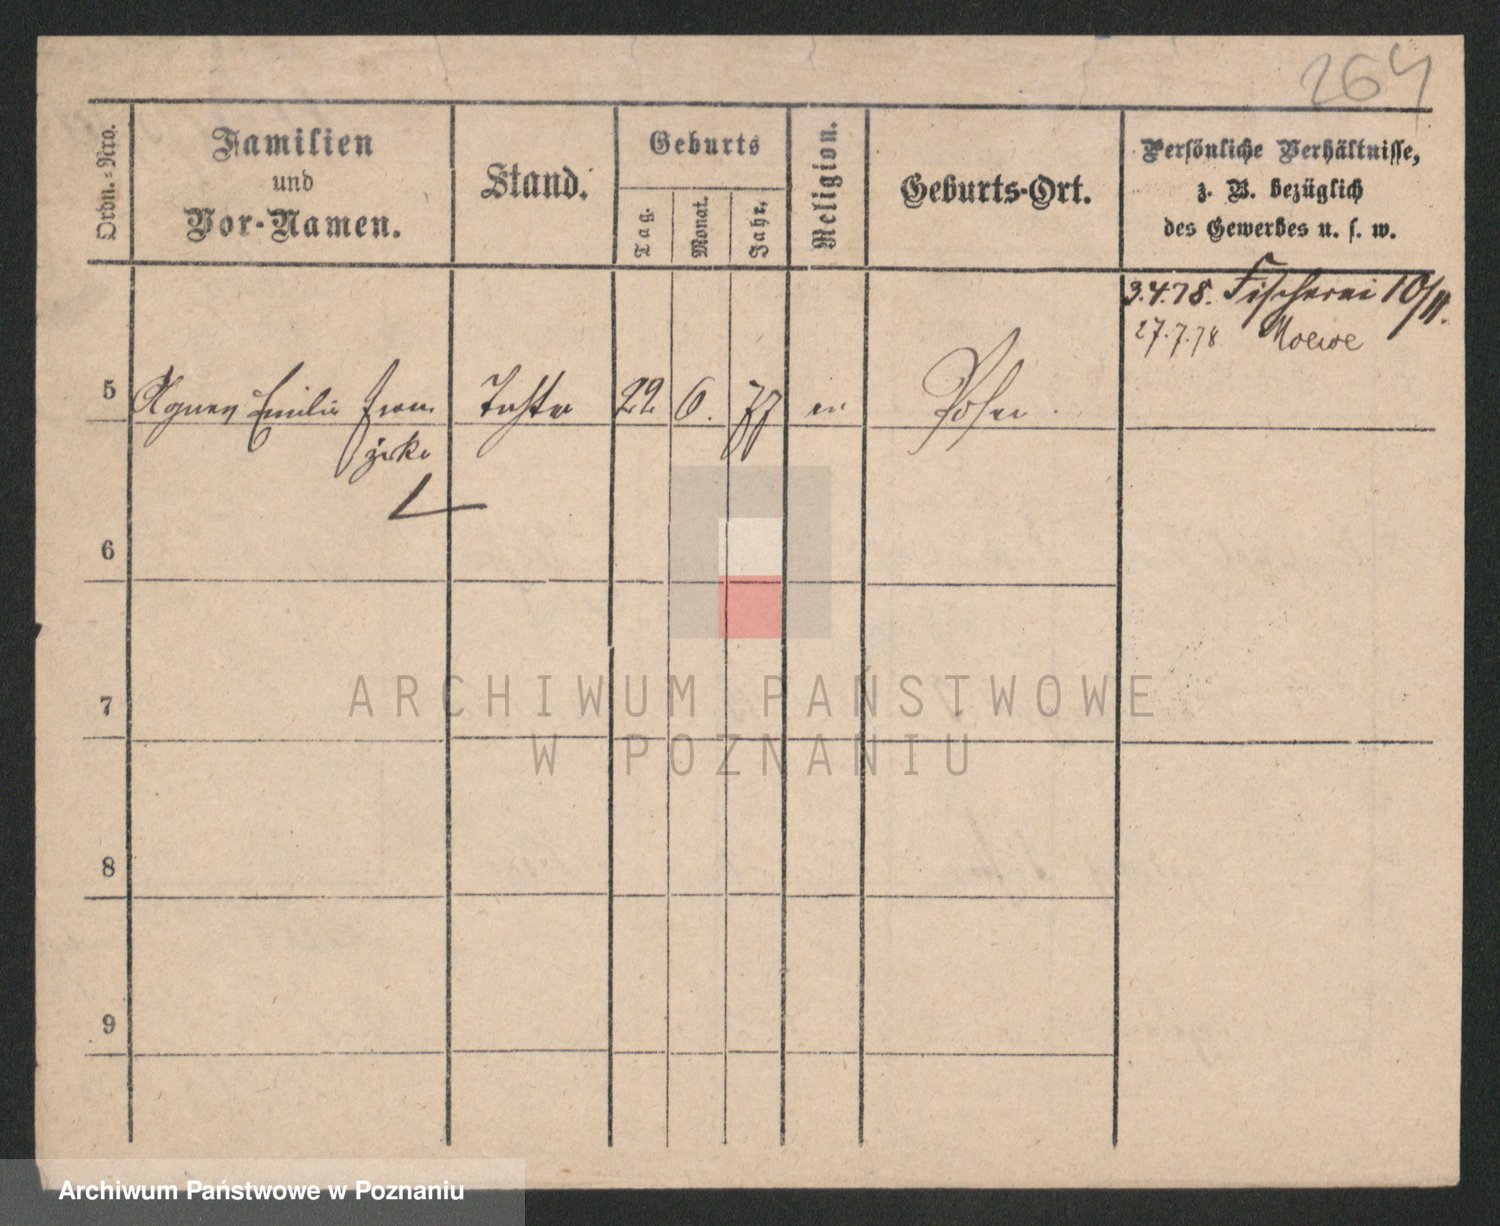 264
Ordn.-Nro.
Familien
und
Vor-Namen.
Stand.
Geburts
Tag.
Monat.
Jahr.
Religion.
Geburts-Ort.
Persönliche Verhältnisse,
z. B. bezüglich
des Gewerbes u. s. w.
3.4.78. Fischerei 10/11.
27.7.78 Moewe
5 Agnes Emilie Fran
ziska Tochter 22 6. 77 ev Posen
6
7
8
9
ARCHIWUM PAŃSTWOWE
W POZNANIU
Archiwum Państwowe w Poznaniu